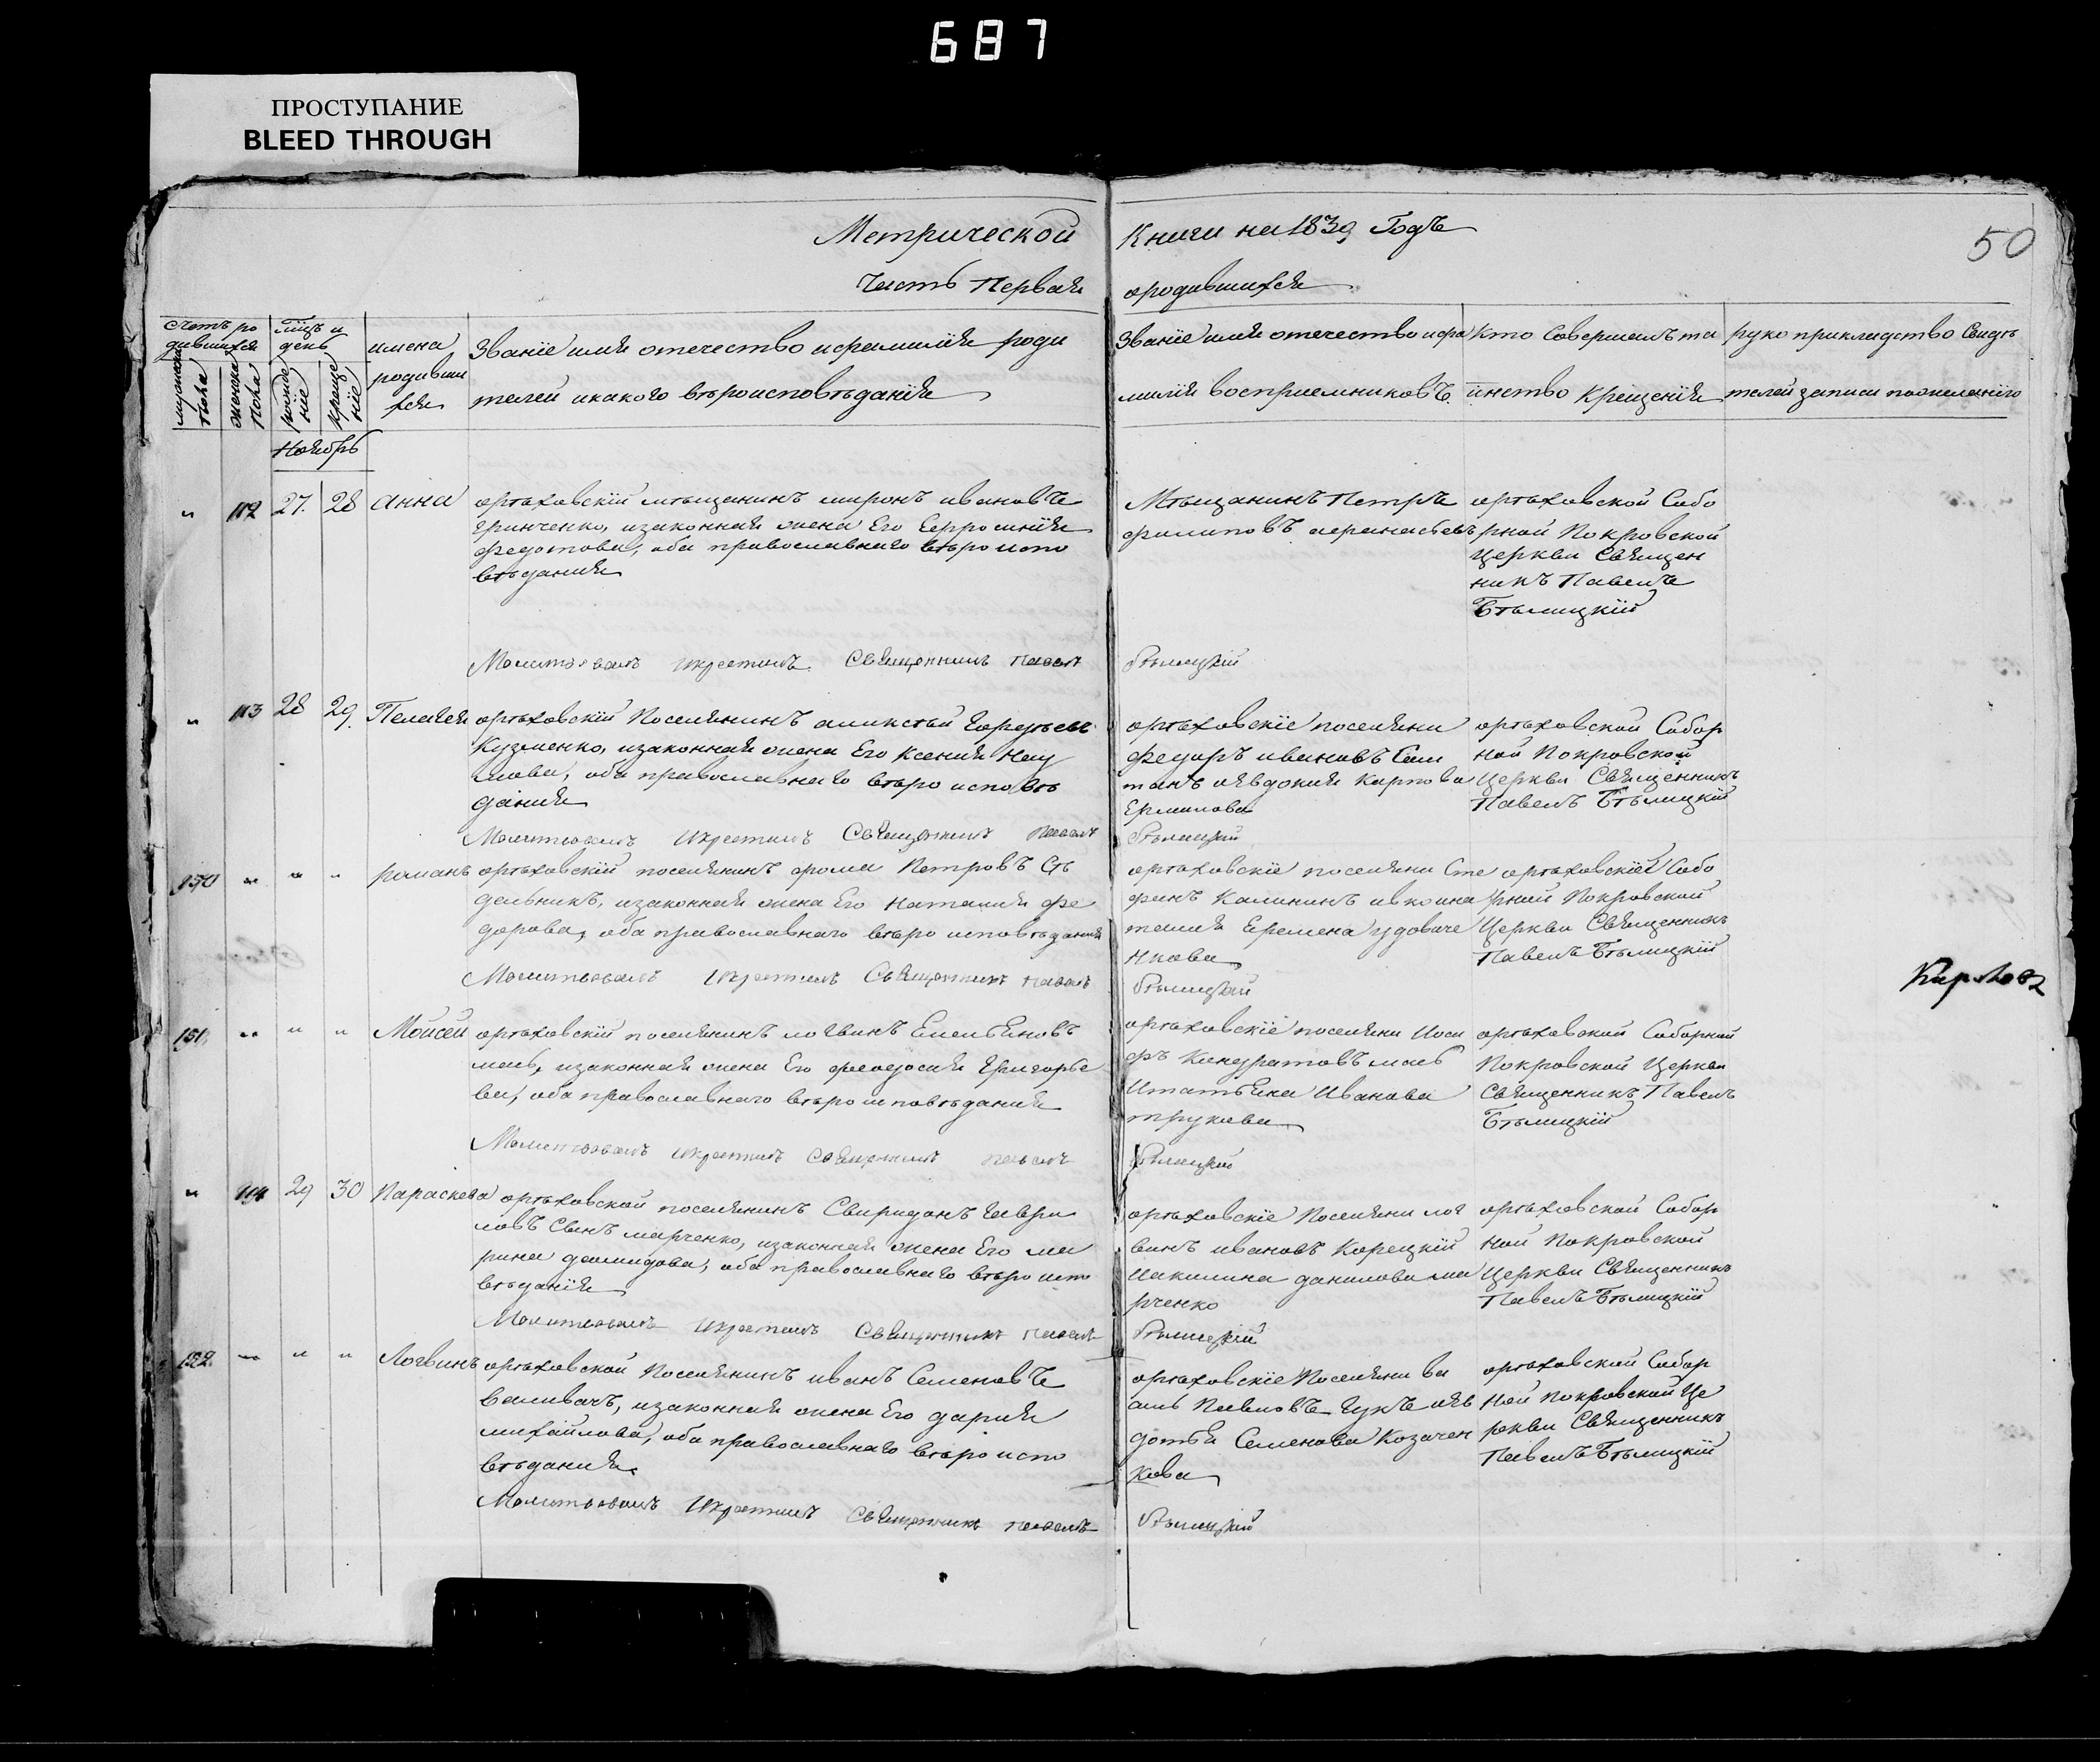 687
ПРОСТУПАНИЕ
BLEED THROUGH
Метрической Книги на 1839 Годъ
50
Часть Первая о родившихся
Счетъ ро
дившихся
мужеска
пола
женска
пола
Мцъ и
день
рожде
ніе
креще
ніе
имена
родивши
хся
Званіе имя отечество и фамилія роди
телей и какого вѣроисповѣданія
Званіе имя отечество и фа
милія восприемниковъ.
Кто Совершалъ та
инство Крещенія
руко прикладство Свидѣ
телей записи по желанію
Ноябрь
" 112 27. 28 анна
орѣховскій мѣщанинъ миронъ ивановъ
гринченко, и законная жена Его Ефросинія
федотова, оба православнаго вѣро испо
вѣдания
Мѣщанинъ Петръ
филиповъ афанасьевъ
орѣховской Собо
рной Покровской
Церкви Священ
никъ Павелъ
Бѣлицкій
Молитвовалъ и крестилъ Священникъ Павелъ Бѣлицкій
" 113 28 29. Пелагея
орѣховскій Поселянинъ аликсѣй
Кузменко, и законная жена Его Ксения Нау
мова, оба православнаго вѣро исповѣ
дания
орѣховскіе поселяни
федоръ ивановъ
и явдокия Карпова
Ермилова
орѣховской Собор
ной Покровской
Церкви Священникъ
Павелъ Бѣлицкій
Молитвовалъ и крестилъ Священникъ Павелъ Бѣлицкій
150 " " " романъ
орѣховскій поселянинъ фома Петровъ Сѣ
дельникъ, и законная жена Его Наталия фе
дорова, оба православнаго вѣро исповѣдания
орѣховскіе поселяни Сте
фанъ Калининъ
талия Еремена удовиче
нкова
орѣховскіей Собо
рной Покровской
Церкви Священникъ
Павелъ Бѣлицкій
Молитвовалъ и крестилъ Священникъ Павелъ Бѣлицкій
151. " " " Мойсей
орѣховскій поселянинъ логвинъ Емельяновъ
маль, и законная жена Его феодосия Григорье
ва, оба православнаго вѣро исповѣдания
орѣховскіе поселяни Иоси
фъ Кондратовъ маль
и татьяна Иванова
трукова
орѣховской Соборной
Покровской Церкви
Священникъ Павелъ
Бѣлицкій
Молитвовалъ и крестилъ Священникъ Павелъ Бѣлицкій
" 114 29 30 Параскева
орѣховской поселянинъ Свиридонъ Гаври
ловъ Сынъ марченко, и законная жена Его ма
рина демидова, оба православнаго вѣро испо
вѣданія
орѣховскіе Поселяни лог
винъ ивановъ Корецкій
и акилина данилова ма
рченко
орѣховской Собор
ной Покровской
Церкви Священникъ
Павелъ Бѣлицкій
Молитвовалъ и крестилъ Священникъ Павелъ Бѣлицкій
152. " " " Логвинъ
орѣховской Поселянинъ иванъ Семеновъ
Валивачъ, и законная жена Его дария
михайлова, оба православнаго вѣро испо
вѣдания
орѣховскіе Поселяни ва
силь Павловъ Гукъ и яв
дотья Семенова Козачен
кова
орѣховской Собор
ной Покровской Це
ркви Священникъ
Павелъ Бѣлицкій
Молитвовалъ и крестилъ Священникъ Павелъ Бѣлицкій